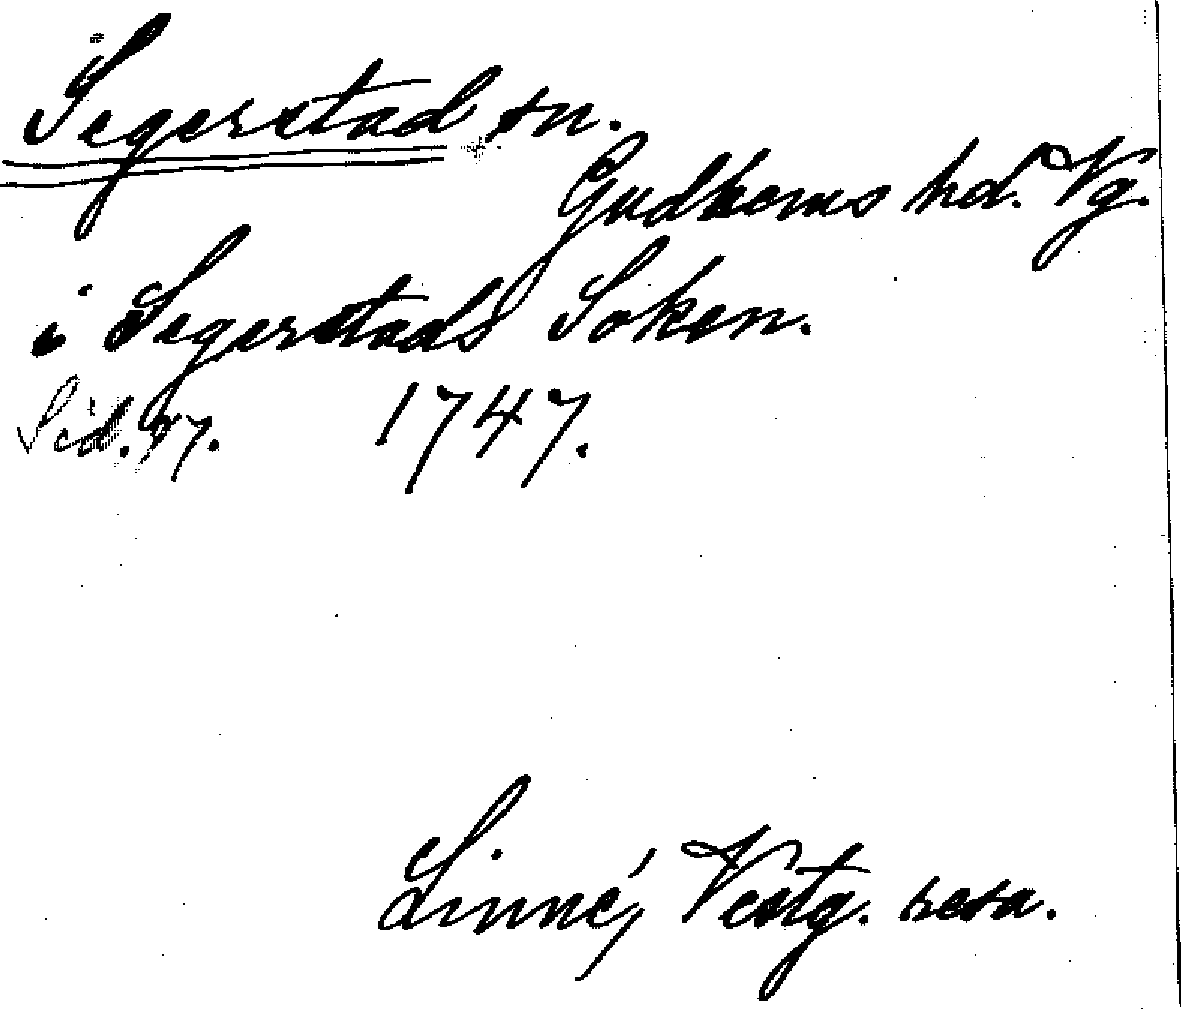 Segerstad sn.
Gudhems hd. Vg.
i Segerstads Soken.
Sid. 1747.
Linné, Vestg. resa.